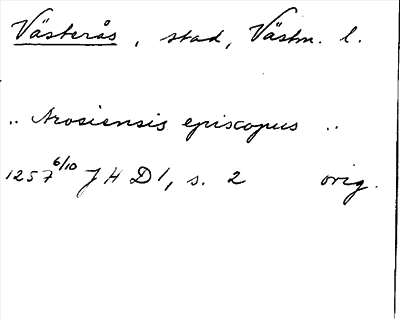 Västerås, stad, Västm. l.
.. Arosiensis episcopus ..
1257 6/10 J H D 1, s. 2 orig.